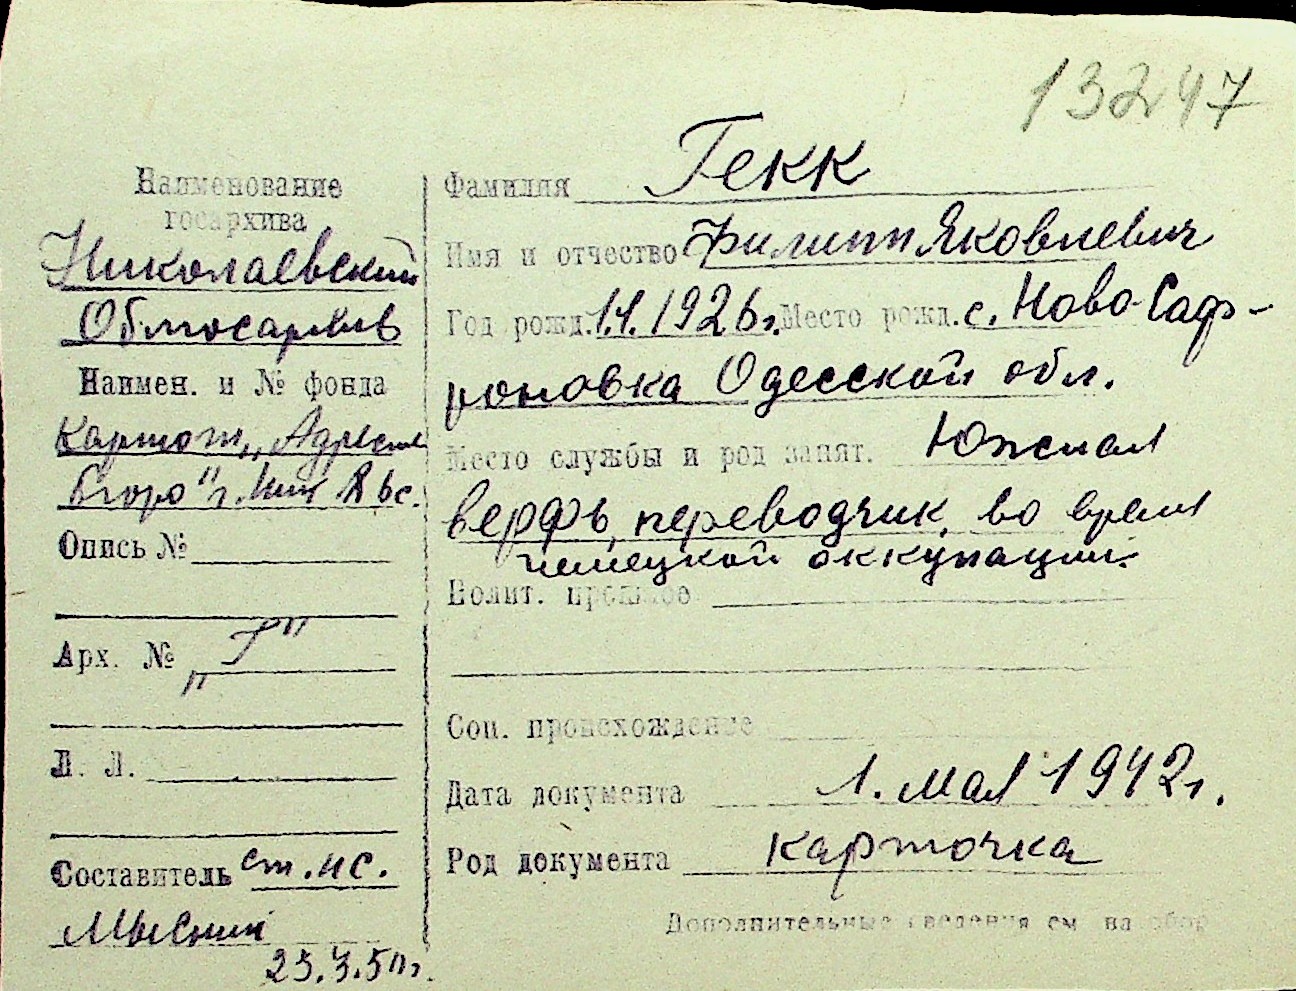 13247
Наименование
госархива
Николаевский
Облгосархив
Наимен. и № фонда
Картот. „Адресное
бюро" г.
Опись №
Арх. № „Г"
Л. Л.
Составитель ст. нс.
23.3.50 г.
Фамилия Гекк
Имя и отчество Филипп Яковлевич
Год рожд. 1.1.1926 г. Место рожд. с. Ново-Саф-
роновка Одесской обл.
Место службы и род занят. Южная
верфь, переводчик, во время
немецкой оккупации.
Полит. прошлое
Соц. происхождение
Дата документа 1. мая 1942 г.
Род документа карточка
Дополнительные сведения см на обор